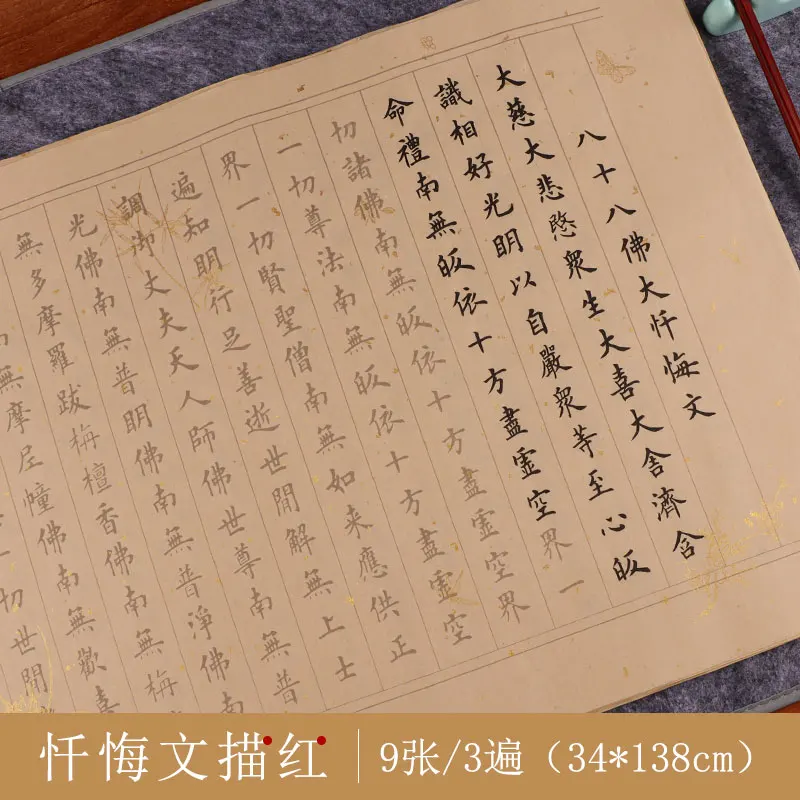 八十八佛大忏悔文
大慈大悲愍衆生大喜大舍濟含
識相好光明以自嚴衆等至心皈
命禮南無皈依十方盡虛空界一
切諸佛南無皈依十方盡虛空界
一切尊法南無皈依十方盡虛空
界一切賢聖僧南無如来應供正
遍知明行足善逝世間解無上士
調御丈夫天人師佛世尊南無普
光佛南無普明佛南無普淨佛南
無多摩羅跋栴檀香佛南無栴
無摩尼幢佛南無歡喜
一切世間
忏悔文描红
9张/3遍（34*138cm）